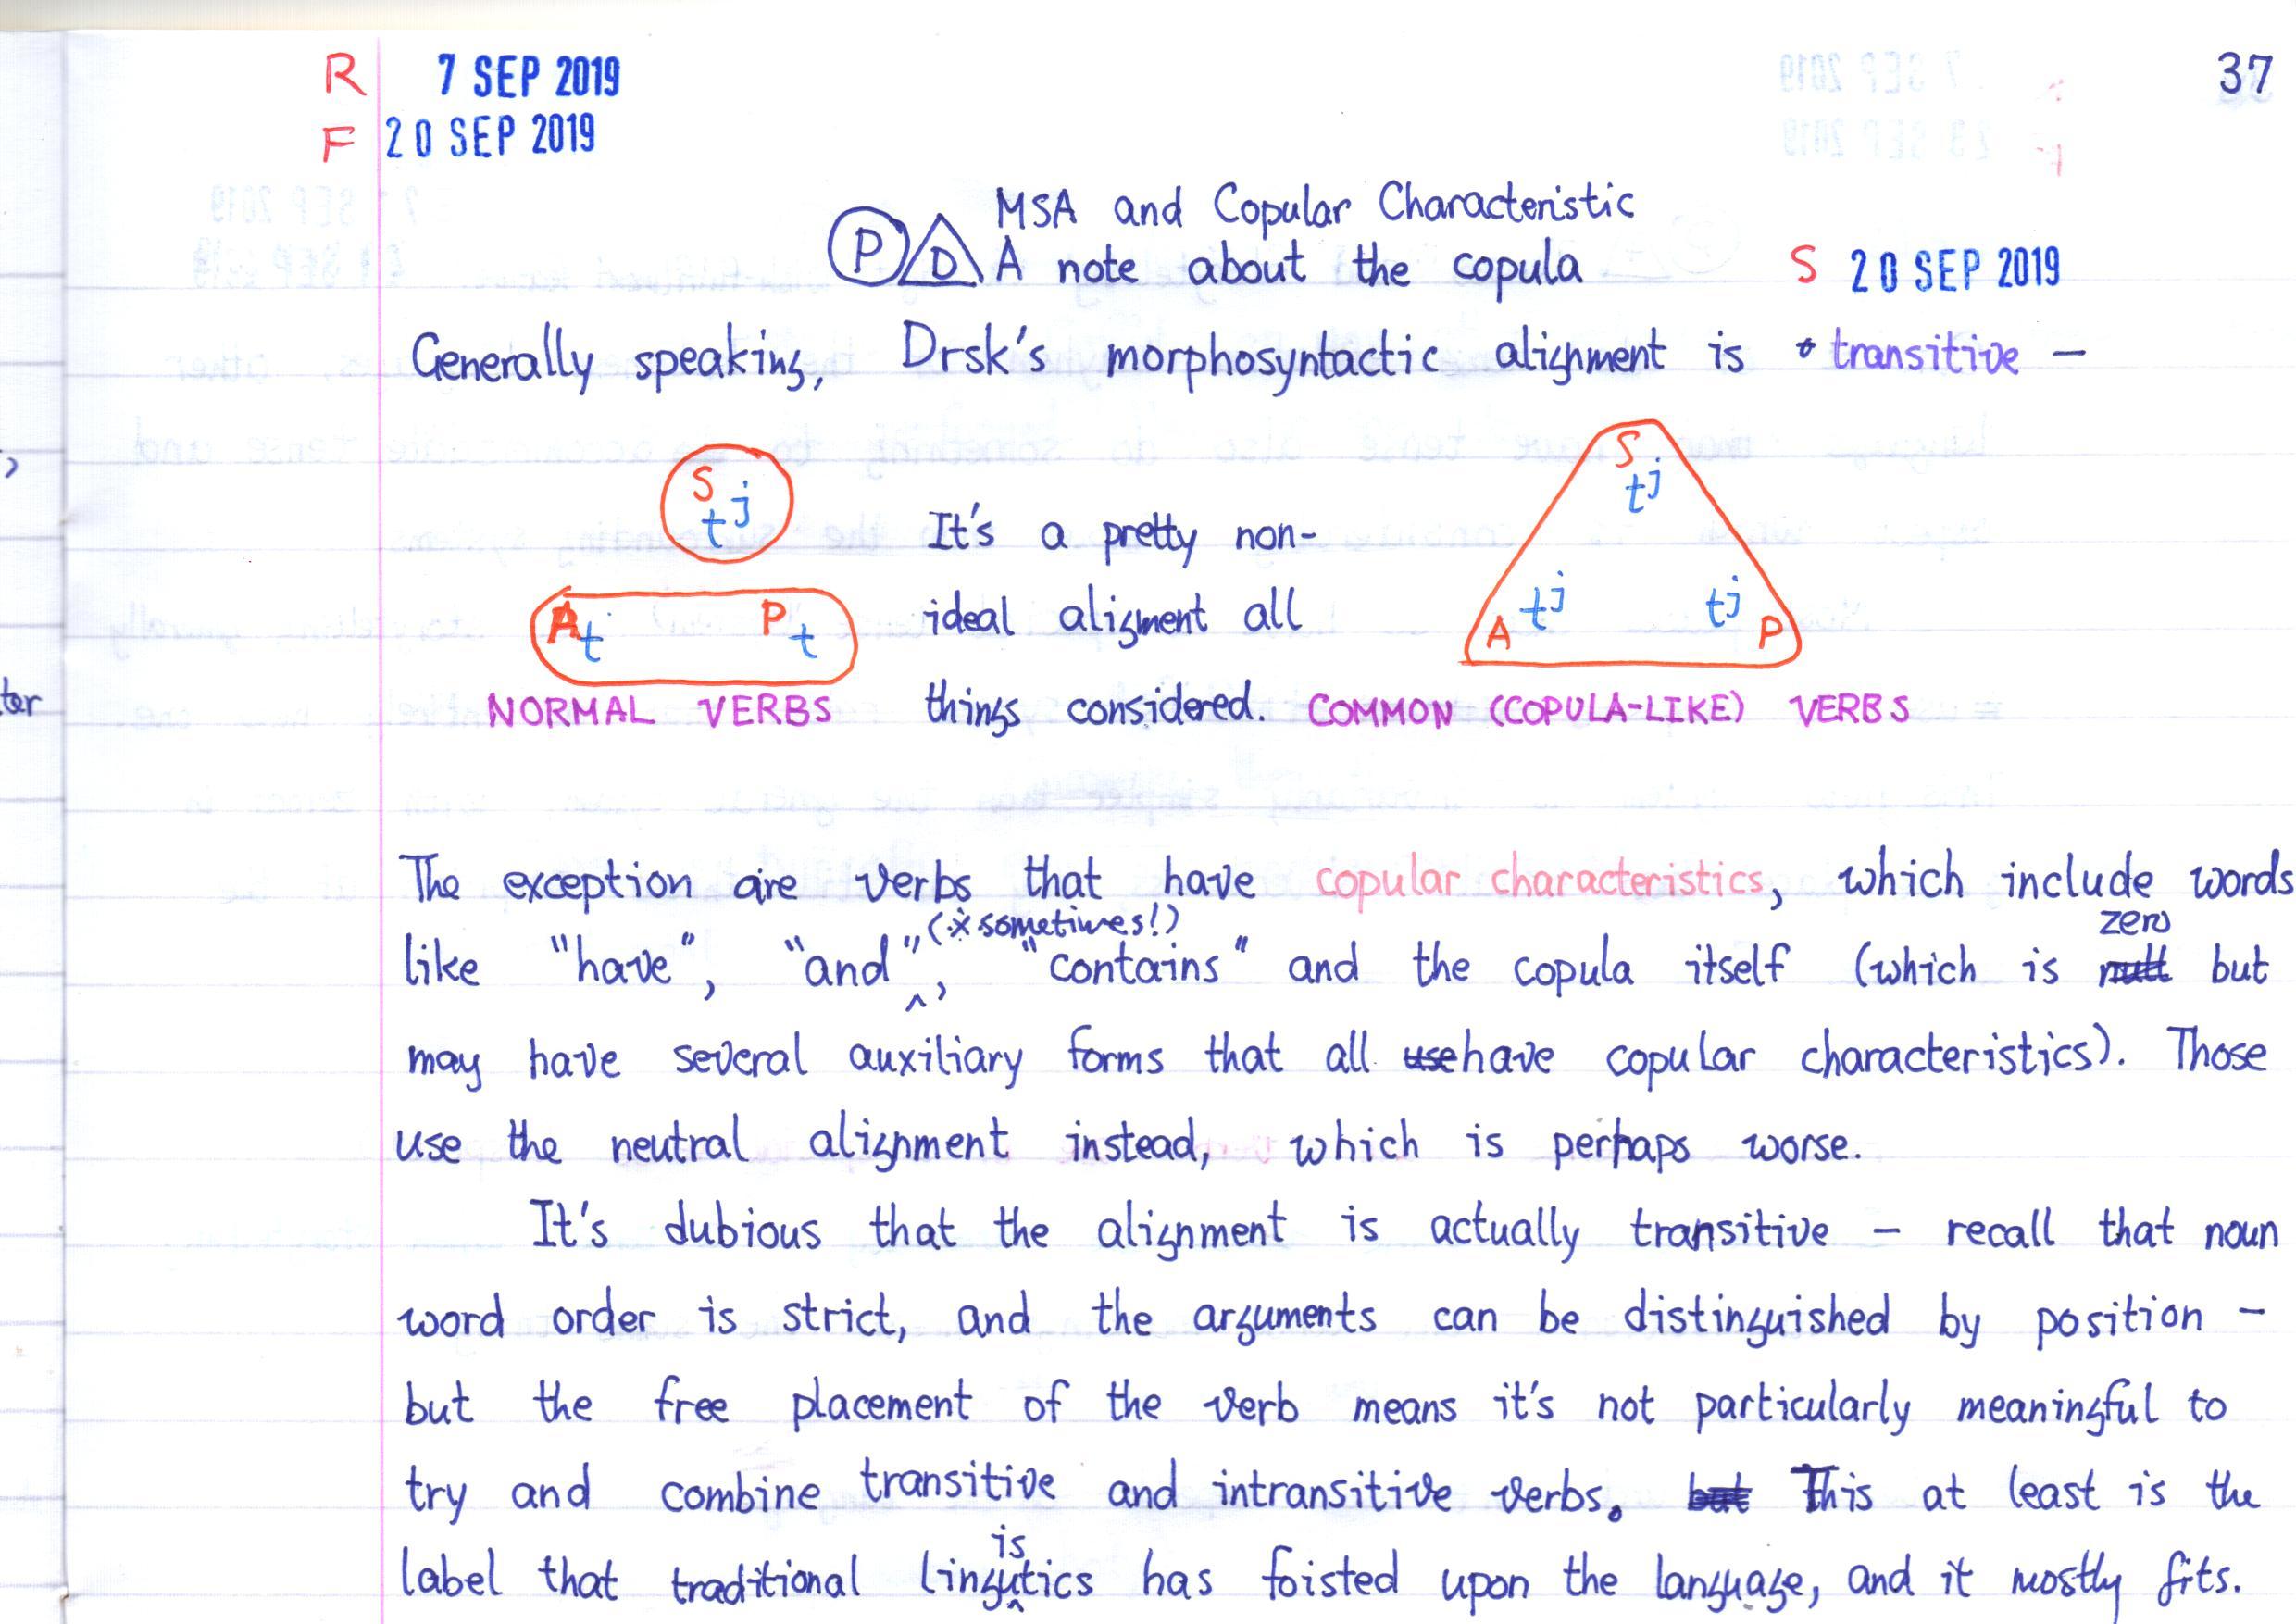 R 7 SEP 2019 37
F 20 SEP 2019
MSA and Copular Characteristic
P D A note about the copula S 20 SEP 2019
Generally speaking, Drsk's morphosyntactic alignment is transitive –
S tj
A t P t
NORMAL VERBS
It's a pretty non-
ideal aligment all
things considered.
S tj
A tj tj P
COMMON (COPULA-LIKE) VERBS
The exception are verbs that have copular characteristics, which include words
like "have", "and" (※sometimes!), "contains" and the copula itself (which is null zero but
may have several auxiliary forms that all use have copular characteristics). Those
use the neutral alignment instead, which is perhaps worse.
It's dubious that the alignment is actually transitive – recall that noun
word order is strict, and the arguments can be distinguished by position –
but the free placement of the verb means it's not particularly meaningful to
try and combine transitive and intransitive verbs. but This at least is the
label that traditional linguistics has foisted upon the language, and it mostly fits.
ter